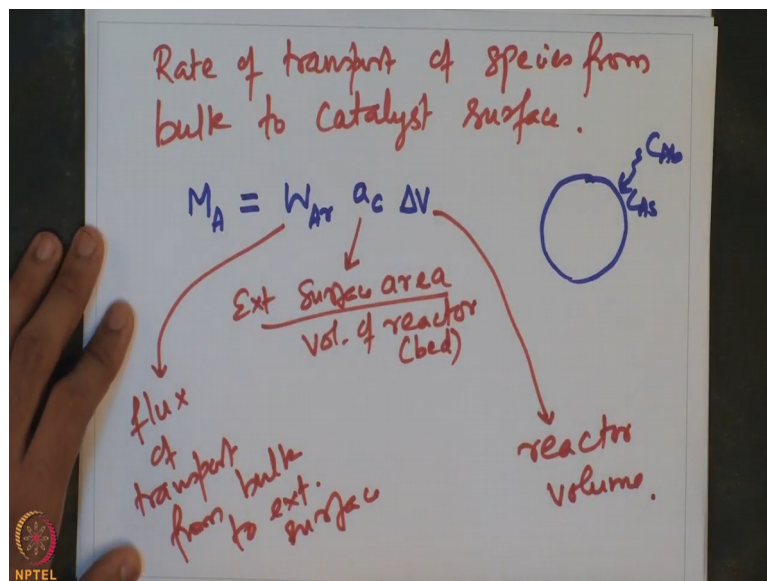 Rate of transport of species from
bulk to catalyst surface.
M_A = W_Ar a_c ΔV
C_Ab
C_As
Ext Surface area
Vol. of reactor
(bed)
flux
of
transport
from bulk
to ext.
surface
reactor
volume.
NPTEL